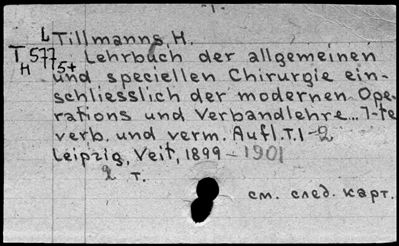 - 1 -
L Tillmanns, H.
T 577 Lehrbuch der allgemeinen
H 75+ und speciellen Chirurgie ein-
schliesslich der modernen Ope-
rations und Verbandlehre... 7-te
verb. und verm. Aufl. T. 1-2
Leipzig, Veit, 1899 - 1901
2 т.
см. след. карт.